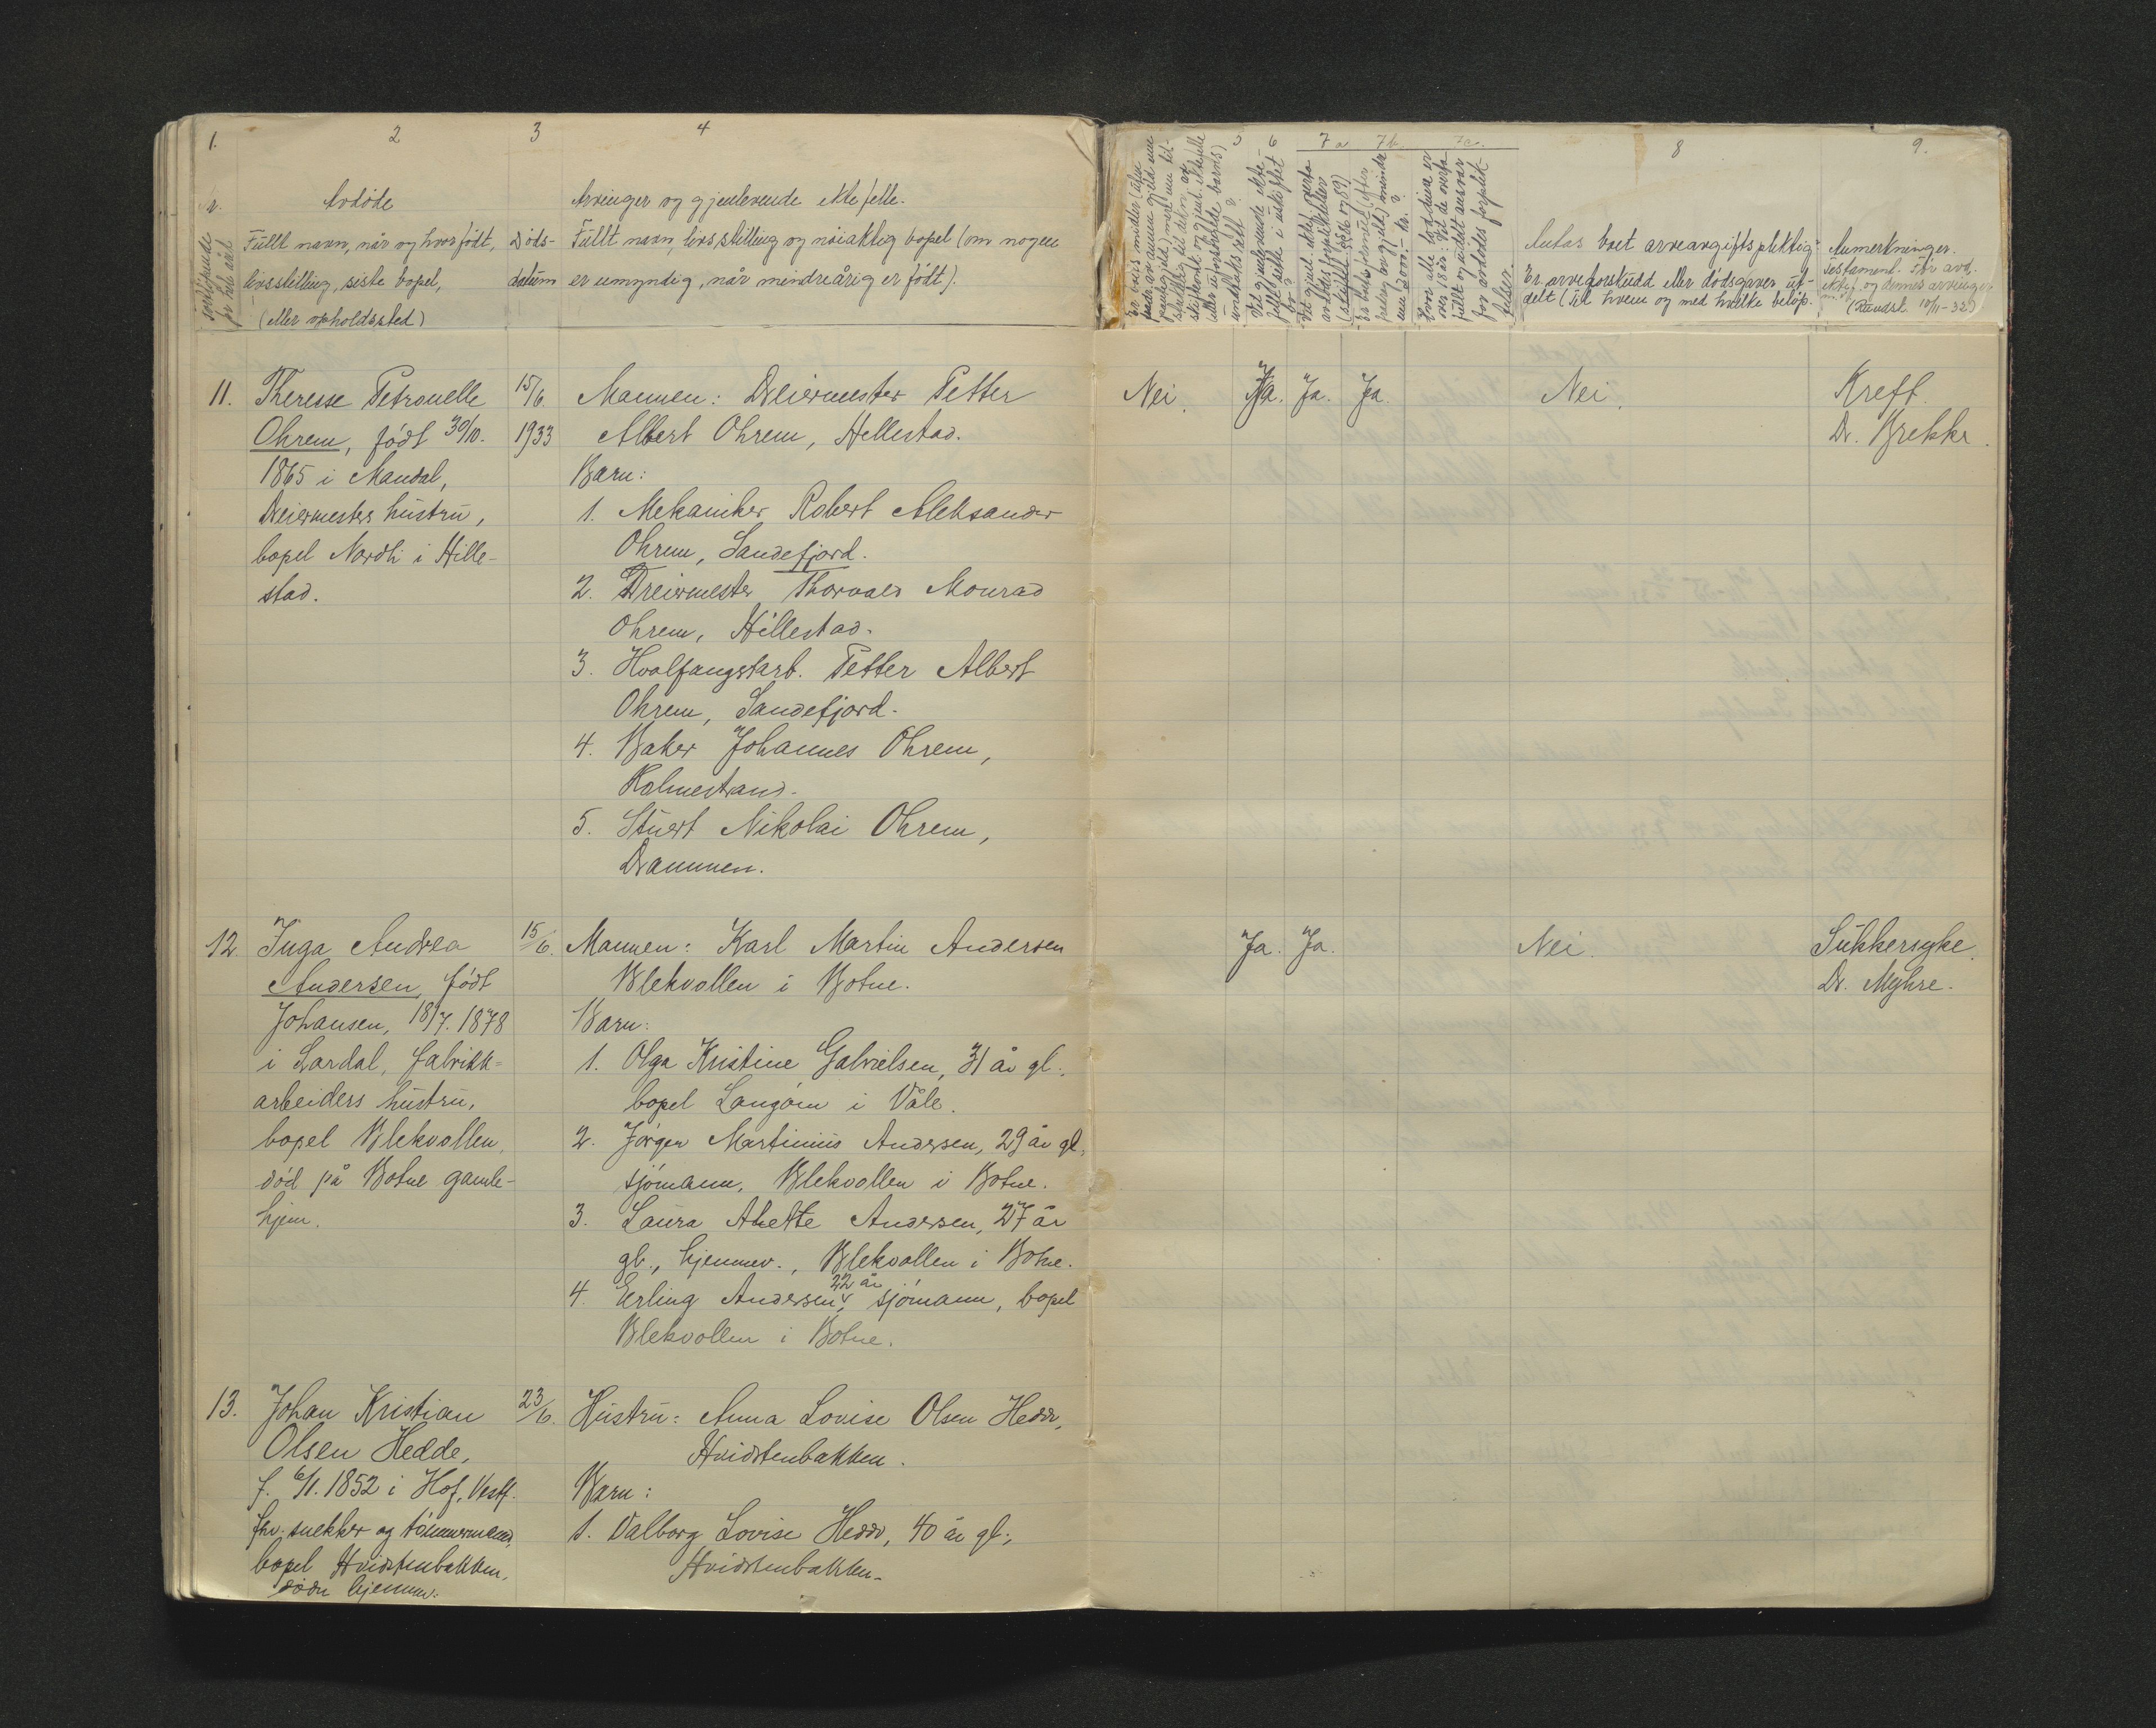 1.
2
3
4
5
6
7a
7b.
7c.
8
9.
Nr.
fortløpende
for hele året
Avdøde
Fullt navn, når og hvor født,
livsstilling, siste bopel,
(eller opholdssted)
Døds-
datum
Arvinger og gjenlevende ektefelle.
Fullt navn, livsstilling og nøiaktig bopel (om nogen
er umyndig, når mindreårig er født).
Antas boet arveavgiftspliktig?
Er arveforskudd eller dødsgaver ut-
delt (til hvem og med hvilke beløp.
Anmerkninger.
Testament.
og dennes arvinger
(Rundsk. 10/11-32)
11.
Therese Petronelle
Ohrem, født 30/10.
1865 i Mandal,
Dreiermesters hustru,
bopel Nordli i Hille-
stad.
15/6.
1933
Mannen: Dreiermester Petter
Albert Ohrem, Hillestad.
Barn:
1. Mekaniker Robert Aleksander
Ohrem, Sandefjord.
2. Dreiermester Thorvald Monrad
Ohrem, Hillestad.
3. Hvalfangstarb. Petter Albert
Ohrem, Sandefjord.
4. Baker Johannes Ohrem,
Holmestrand.
5. Stuert Nikolai Ohrem,
Drammen.
Nei.
Ja.
Ja.
Ja.
Nei.
Kreft.
Dr. Brekke.
12.
Inga Andrea
Andersen, født
Johansen, 18/7. 1878
i Lardal, fabrikk=
arbeiders hustru,
bopel Blekvollen,
død på Botne gamle-
hjem.
15/6.
Mannen: Karl Martin Andersen
Blekvollen i Botne.
Barn:
1. Olga Kristine Gabrielsen, 31 år gl.,
bopel Langøen i Våle.
2. Jørgen Martinius Andersen, 29 år gl,
sjømann, Blekvollen i Botne.
3. Laura Anette Andersen, 27 år
gl., hjemmev., Blekvollen i Botne.
4. Erling Andersen, 22 år sjømann, bopel
Blekvollen i Botne.
Ja.
Ja.
Nei.
Sukkersyke.
Dr. Myhre.
13.
Johan Kristian
Olsen Hedde,
f. 6/1. 1852 i Hof, Vestf.
fhv. snekker og tømmermand,
bopel Hvidstenbakken,
døde hjemme.
23/6.
Hustru: Anna Lovise Olsen Hedde,
Hvidstenbakken.
Barn:
1. Valborg Lovise Hedde, 40 år gl.,
Hvidstenbakken.